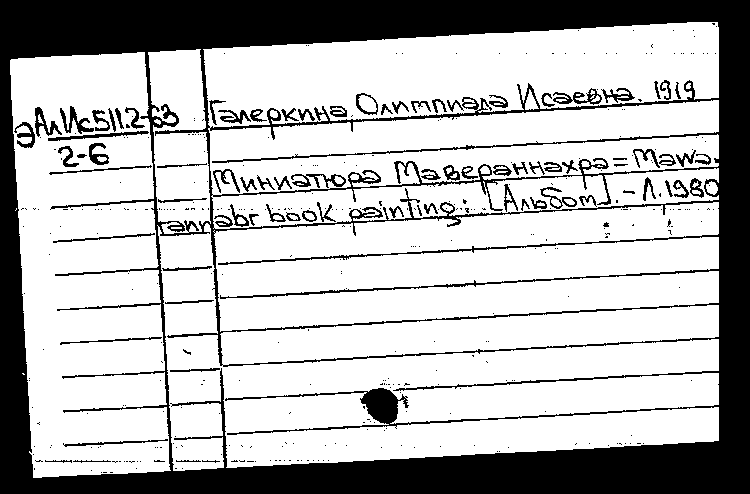 эАлИс511.2-63 Галеркина Олимпиада Исаевна. 1919
2-6
Миниатюра Мавераннахра = Mawa-
rannabr book painting: [Альбом]. - Л. 1980